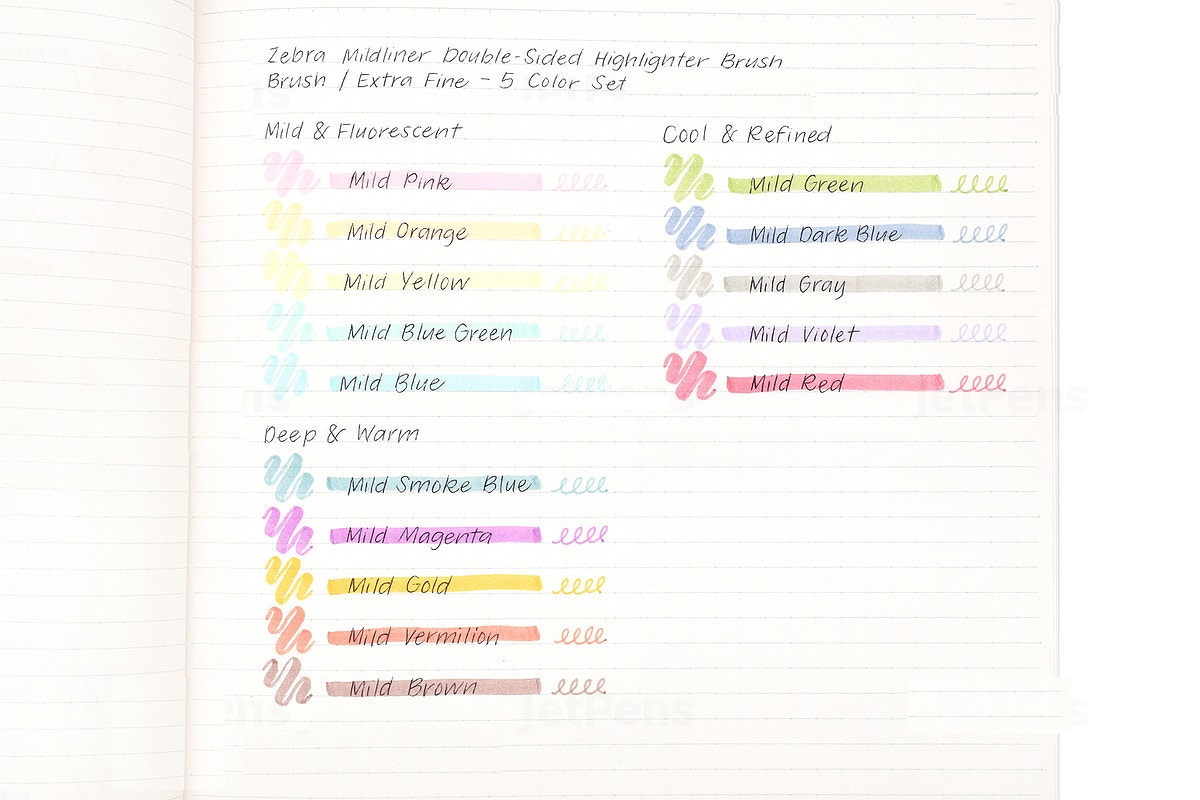 Zebra Mildliner Double-Sided Highlighter Brush
Brush / Extra Fine - 5 Color Set
Mild & Fluorescent
Mild Pink
Mild Orange
Mild Yellow
Mild Blue Green
Mild Blue
Cool & Refined
Mild Green
Mild Dark Blue
Mild Gray
Mild Violet
Mild Red
Deep & Warm
Mild Smoke Blue
Mild Magenta
Mild Gold
Mild Vermilion
Mild Brown
JetPens
JetPens